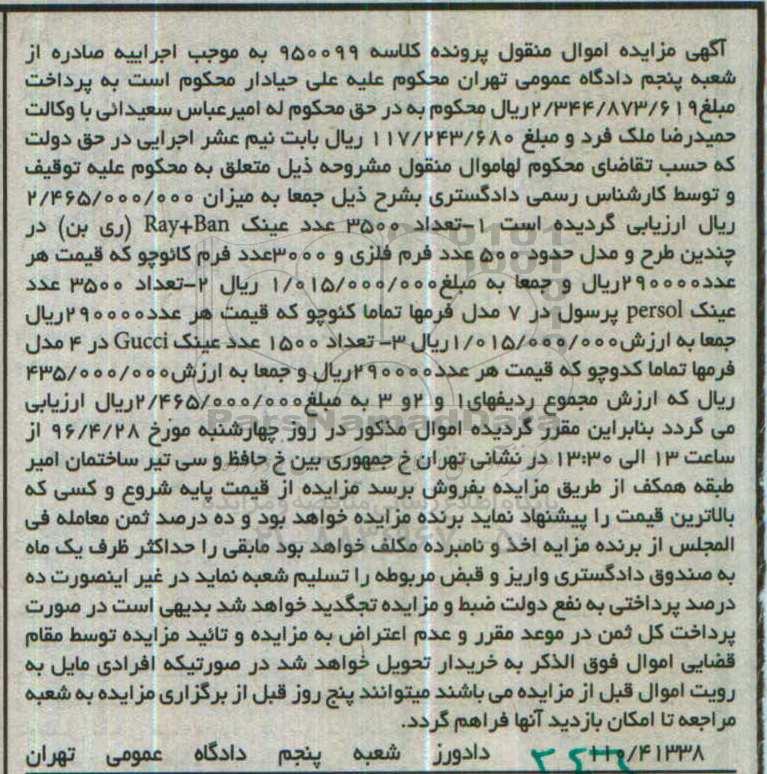 آگهی مزایده اموال منقول پرونده کلاسه ۹۵۰۰۹۹ به موجب اجراییه صادره از
شعبه پنجم دادگاه عمومی تهران محکوم علیه علی حیادار محکوم است به پرداخت
مبلغ۲/۳۴۴/۸۷۳/۶۱۹ریال محکوم به در حق محکوم له امیرعباس سعیدائی با وکالت
حمیدرضا ملک فرد و مبلغ ۱۱۷/۲۴۳/۶۸۰ ریال بابت نیم عشر اجرایی در حق دولت
که حسب تقاضای محکوم لهاموال منقول مشروحه ذیل متعلق به محکوم علیه توقیف
و توسط کارشناس رسمی دادگستری بشرح ذیل جمعا به میزان ۲/۴۶۵/۰۰۰/۰۰۰
ریال ارزیابی گردیده است ۱-تعداد ۳۵۰۰ عدد عینک Ray+Ban (ری بن) در
چندین طرح و مدل حدود ۵۰۰ عدد فرم فلزی و ۳۰۰۰عدد فرم کائوچو که قیمت هر
عدد۲۹۰۰۰۰ریال و جمعا به مبلغ۱/۰۱۵/۰۰۰/۰۰۰ ریال ۲-تعداد ۳۵۰۰ عدد
عینک persol پرسول در ۷ مدل فرمها تماما کئوچو که قیمت هر عدد۲۹۰۰۰۰ریال
جمعا به ارزش۱/۰۱۵/۰۰۰/۰۰۰ریال ۳- تعداد ۱۵۰۰ عدد عینک Gucci در ۴ مدل
فرمها تماما کدوچو که قیمت هر عدد۲۹۰۰۰۰ریال و جمعا به ارزش۴۳۵/۰۰۰/۰۰۰
ریال که ارزش مجموع ردیفهای۱ و ۲و ۳ به مبلغ۲/۴۶۵/۰۰۰/۰۰۰ریال ارزیابی
می گردد بنابراین مقرر گردیده اموال مذکور در روز چهارشنبه مورخ ۹۶/۴/۲۸ از
ساعت ۱۳ الی ۱۳:۳۰ در نشانی تهران خ جمهوری بین خ حافظ و سی تیر ساختمان امیر
طبقه همکف از طریق مزایده بفروش برسد مزایده از قیمت پایه شروع و کسی که
بالاترین قیمت را پیشنهاد نماید برنده مزایده خواهد بود و ده درصد ثمن معامله فی
المجلس از برنده مزایه اخذ و نامبرده مکلف خواهد بود مابقی را حداکثر ظرف یک ماه
به صندوق دادگستری واریز و قبض مربوطه را تسلیم شعبه نماید در غیر اینصورت ده
درصد پرداختی به نفع دولت ضبط و مزایده تجگدید خواهد شد بدیهی است در صورت
پرداخت کل ثمن در موعد مقرر و عدم اعتراض به مزایده و تائید مزایده توسط مقام
قضایی اموال فوق الذکر به خریدار تحویل خواهد شد در صورتیکه افرادی مایل به
رویت اموال قبل از مزایده می باشند میتوانند پنج روز قبل از برگزاری مزایده به شعبه
مراجعه تا امکان بازدید آنها فراهم گردد.
۱۱۰/۴۱۳۳۸ دادورز شعبه پنجم دادگاه عمومی تهران